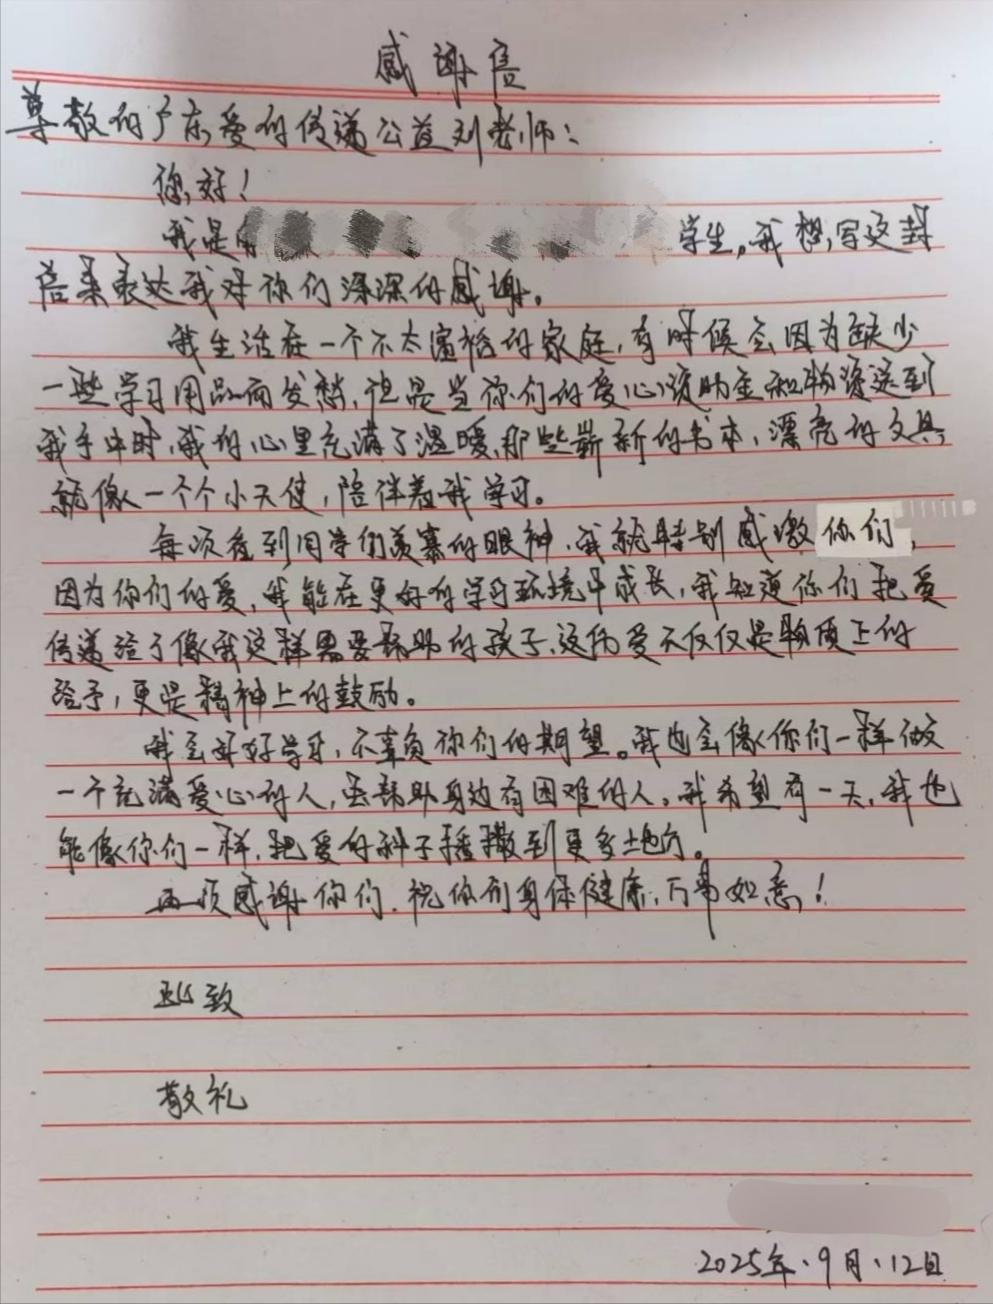 感谢信
尊敬的广东爱的传递公益刘老师：
你好！
我是 学生。我想写这封
信来表达我对你们深深的感谢。
我生活在一个不太富裕的家庭，有时候会因为缺少
一些学习用品而发愁，但是当你们的爱心资助金和物资送到
我手中时，我的心里充满了温暖，那些崭新的书本，漂亮的文具，
就像一个个小天使，陪伴着我学习。
每次看到同学们羡慕的眼神，我就特别感激你们，
因为你们的爱，我能在更好的学习环境中成长，我知道你们把爱
传递给了像我这样需要帮助的孩子，这份爱不仅仅是物质上的
给予，更是精神上的鼓励。
我会好好学习，不辜负你们的期望。我也会像你们一样做
一个充满爱心的人，去帮助身边有困难的人。我希望有一天，我也
能像你们一样，把爱的种子播撒到更多地方。
再次感谢你们，祝你们身体健康，万事如意！
此致
敬礼
2025年、9月、12日